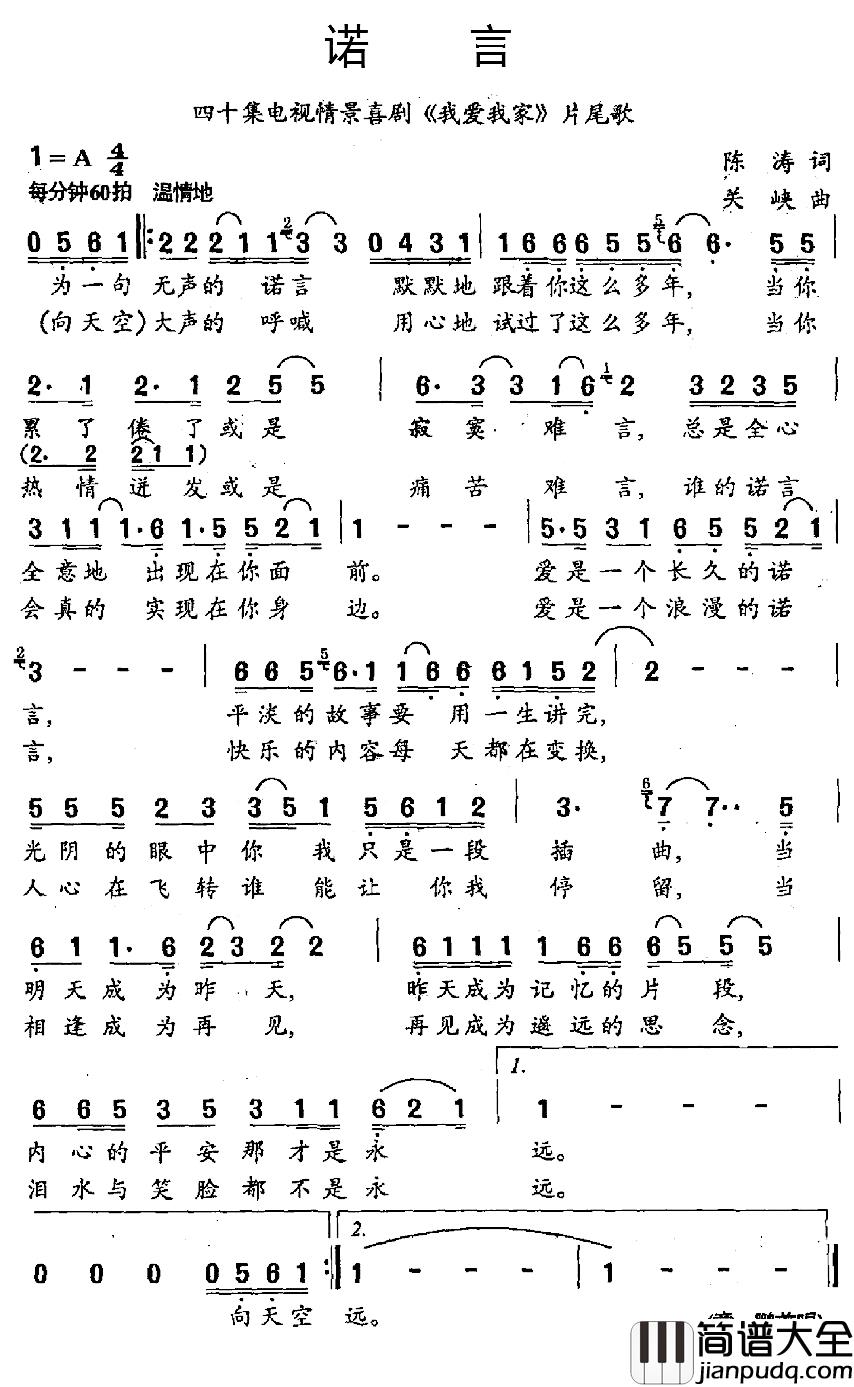 诺 言
四十集电视情景喜剧《我爱我家》片尾歌
1=A 4/4
陈 涛 词
每分钟60拍 温情地
关 峡 曲
0 5 6 1 |: 2 2 2 1 1 2 3 3 0 4 3 1 | 1 6 6 6 5 5 5 6 6· 5 5 |
为一句 无声的 诺言 默默地 跟着你这么多年, 当你
(向天空)大声的 呼喊 用心地 试过了这么多年, 当你
2· 1 2· 1 2 5 5 | 6· 3 3 1 6 1 2 3 2 3 5 |
累了倦了或是 寂寞难言, 总是全心
(2· 2 2 1 1)
热情迸发或是 痛苦难言, 谁的诺言
3 1 1 1 1·6 1·5 5 2 1 | 1 - - - | 5·5 3 1 6 5 5 2 1 |
全意地 出现在你面 前。 爱是一个长久的诺
会真的 实现在你身 边。 爱是一个浪漫的诺
2 3 - - - | 6 6 5 5 6·1 1 6 6 6 1 5 2 | 2 - -
言, 平淡的故事要 用一生讲完,
言, 快乐的内容每 天都在变换,
5 5 5 2 3 3 5 1 5 6 1 2 | 3· 6 7 7·· 5 |
光阴的眼中你 我只是一段 插 曲, 当
人心在飞转谁 能让 你我 停 留, 当
6 1 1· 6 2 3 2 2 | 6 1 1 1 1 6 6 6 5 5 5 |
明天成为昨 天, 昨天成为记忆的片 段,
相逢成为再 见, 再见成为遥远的思 念,
1.
6 6 5 3 5 3 1 1 6 2 1 | 1 - - - |
内心的平安那才是永 远。
泪水与笑脸都不是永 远。
2.
0 0 0 0 5 6 1 :| 1 - - - | 1 - - - |
向天空 远。
简谱大全
jianpudq.com